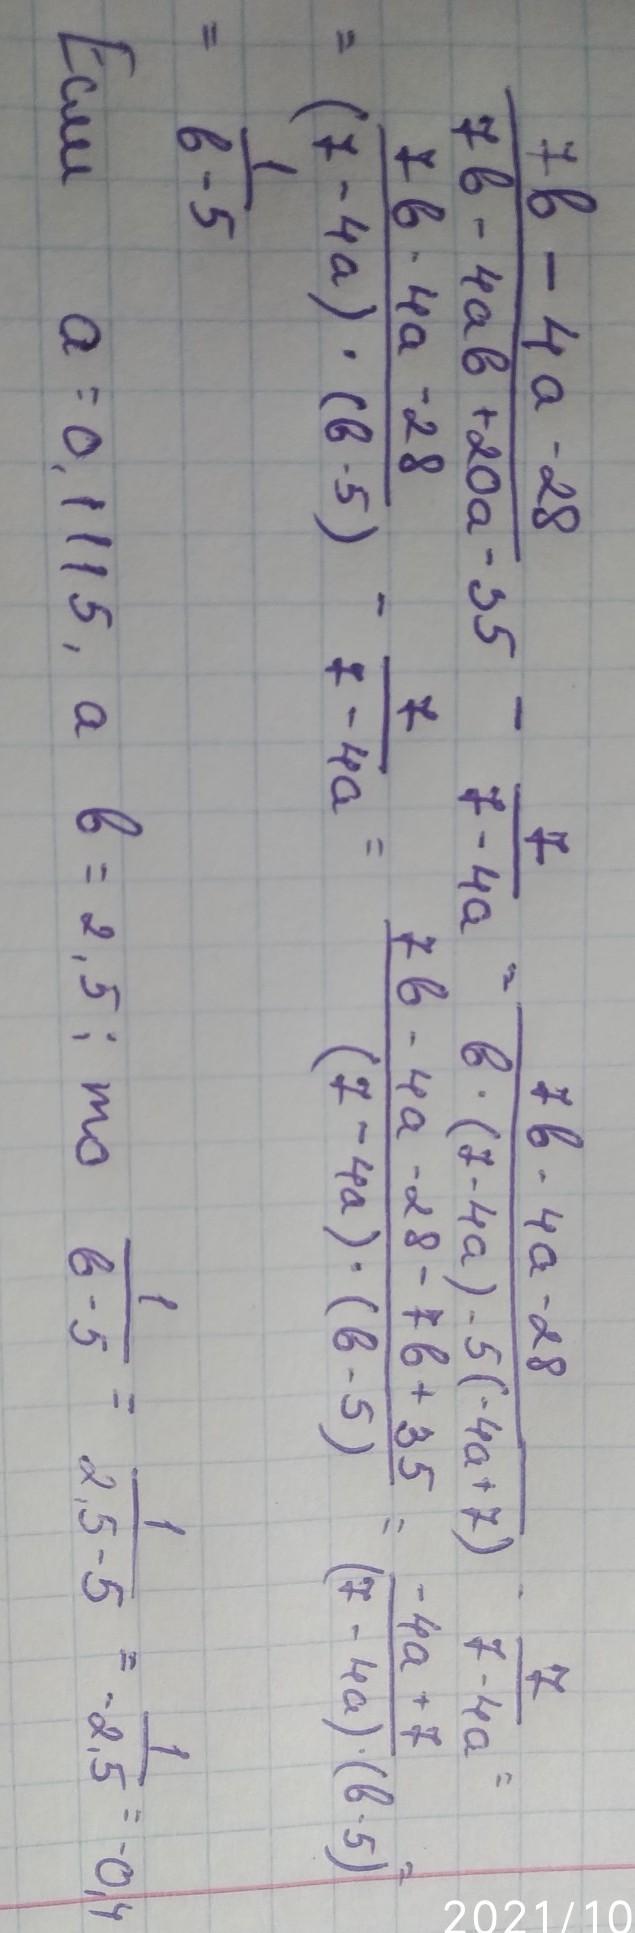 (7b - 4a - 28)/(7b - 4ab + 20a - 35) - 7/(7 - 4a) = (7b - 4a - 28)/(b · (7 - 4a) - 5(-4a + 7)) - 7/(7 - 4a) =
= (7b - 4a - 28)/((7 - 4a) · (b - 5)) - 7/(7 - 4a) = (7b - 4a - 28 - 7b + 35)/((7 - 4a) · (b - 5)) = (-4a + 7)/((7 - 4a) · (b - 5)) =
= 1/(b - 5)
Если a = 0,1115, а b = 2,5; то 1/(b - 5) = 1/(2,5 - 5) = 1/(-2,5) = -0,4
2021/10